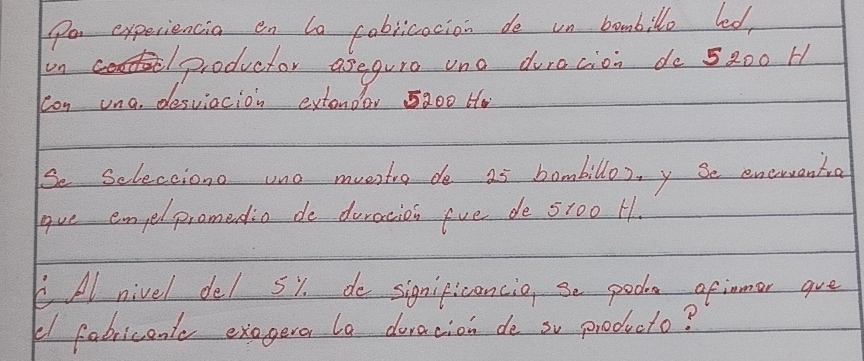 Por experiencia en la fabricación de un bombillo led,
un productor asegura una duración de 5200 H
con una. desviación extandar 5200 H.
Se selecciono una muestra de 25 bombillos, y se encuentra
que en el promedio de duración fue de 5100 H.
¿ Al nivel del 5% de significancia, se podra afirmar que
el fabricante exagera la duración de su producto?